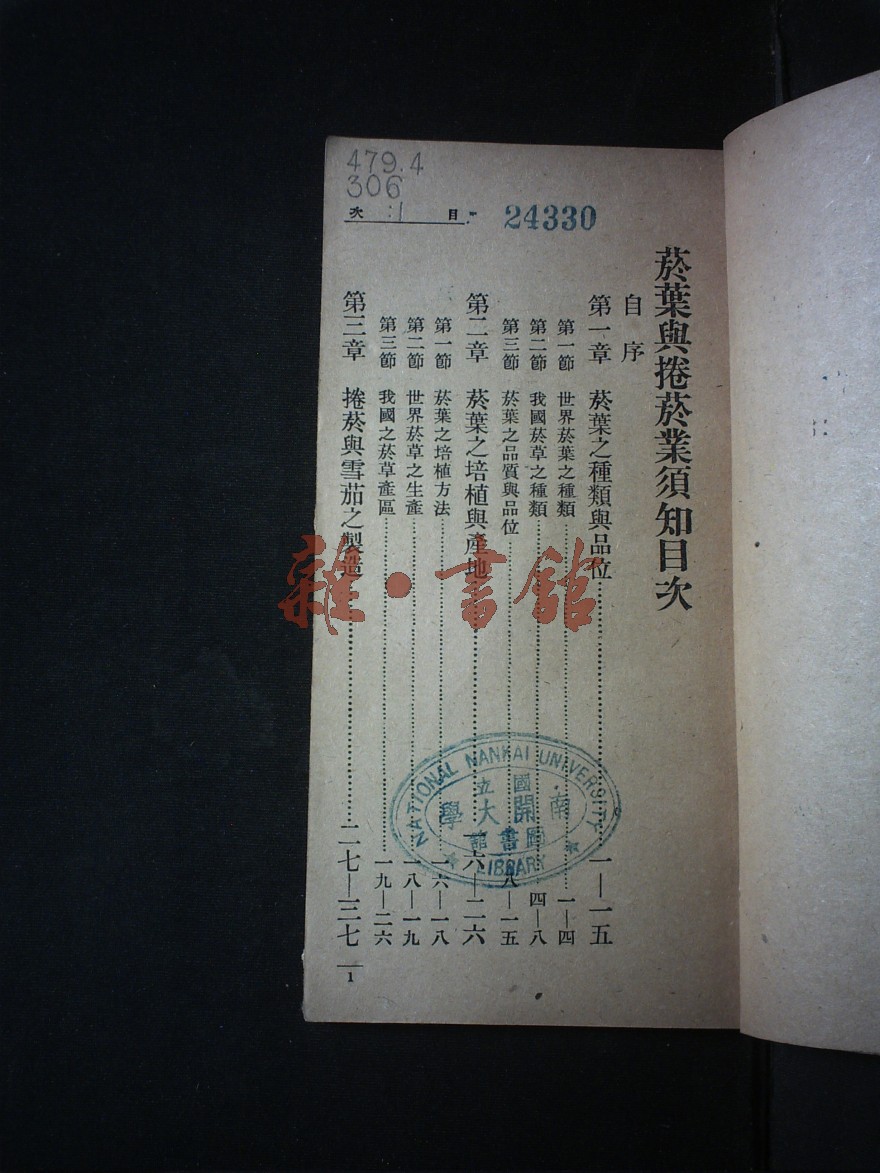 479.4
306
:1
目 次
24330
菸葉與捲菸業須知目次
自序
第一章 菸葉之種類與品位……一—一五
第一節 世界菸葉之種類……一—四
第二節 我國菸草之種類……四—八
第三節 菸葉之品質與品位……八—一五
第二章 菸葉之培植與產地……一六—二六
第一節 菸葉之培植方法……一六—一八
第二節 世界菸草之生產……一八—一九
第三節 我國之菸草產區……一九—二六
第三章 捲菸與雪茄之製造……二七—三七
1
NATIONAL NANKAI UNIVERSITY
國立
南開大學
圖書館
LIBRARY
雜·書館